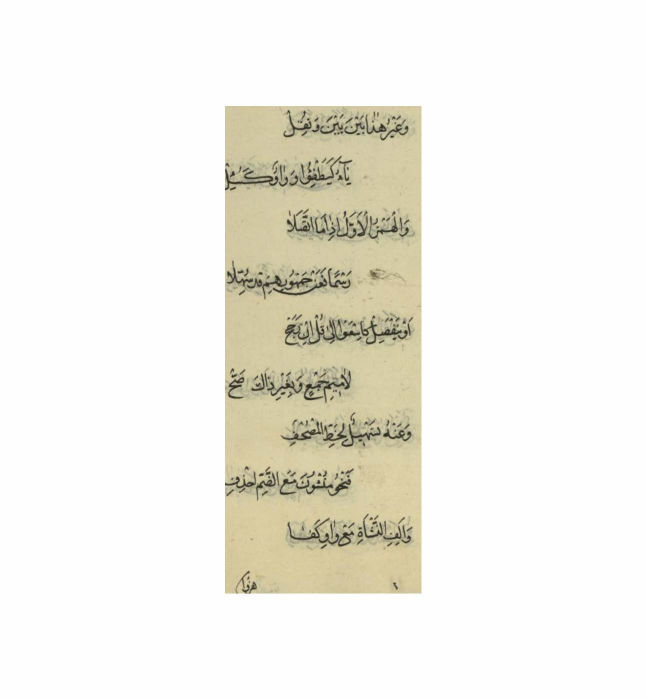 وَغَيْرُ هٰذَا بَيْنَ بَيْنَ وَنُقِلْ
يَآءٌ كَيُطْفِئُوا وَوَاوٌ كَسُئِلْ
وَالْهَمْزُ الْاَوَّلُ اِذَا مَا اتَّصَلَا
رَسْمًا فَعَنْ جُمْهُورِهِمْ قَدْ سُهِّلَا
اَوْ يَنْفَصِلْ كَاسْعَوْا اِلٰى قُلْ اِنْ رَجَحْ
لَا مِيمِ جَمْعٍ وَبِغَيْرِ ذَاكَ صَحّْ
وَعَنْهُ تَسْهِيلٌ كَخَطِّ الْمُصْحَفِ
فَنَحْوُ مُنْشُونَ مَعَ الضَّمِّ احْذِفِ
وَاَلِفُ النَّشْاَةِ مَعْ وَاوِ كُفَا
هزوا